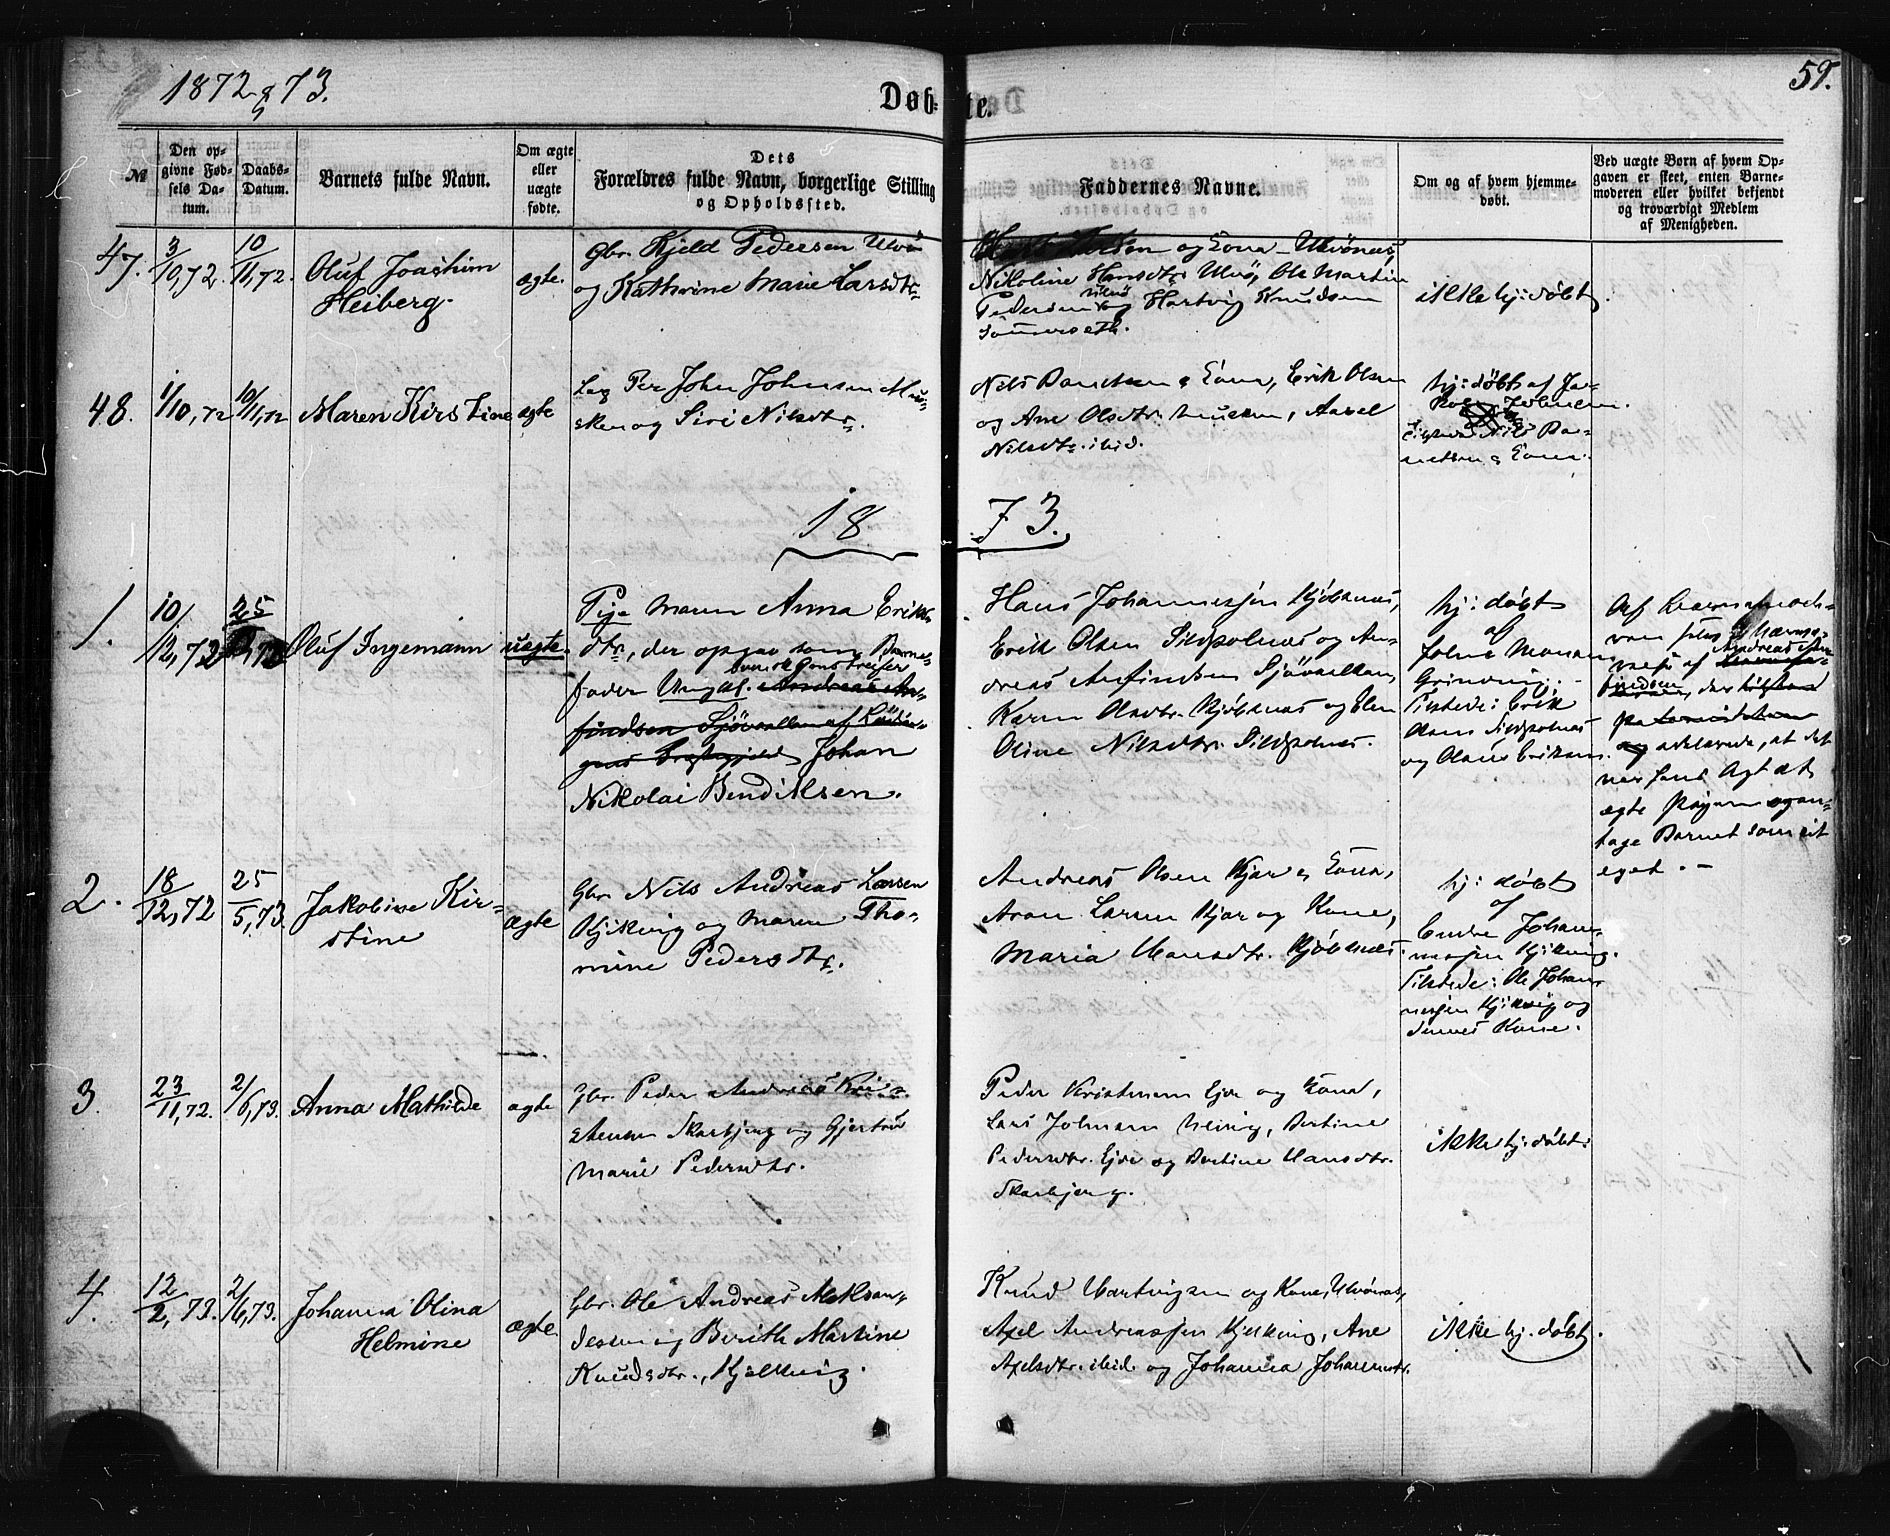 1872 & 73.
Døb-
te.
59.
№
Den op-
givne Fød-
sels Da-
tum.
Daabs-
Datum.
Barnets fulde Navn.
Om ægte
eller
uægte
fødte.
Dets
Forældres fulde Navn, borgerlige Stilling
og Opholdssted.
Faddernes Navne.
Om og af hvem hjemme-
døbt.
Ved uægte Børn af hvem Op-
gaven er skeet, enten Barne-
moderen eller hvilket bekjendt
og troværdigt Medlem
af Menigheden.
47.
3/10,72.
10/11,72
Oluf Joachim
Heiberg.
ægte.
Gbr. Kjeld Pedersen Ulvø
og Kathrine Marie Larsdtr.
og Kona Ulvönæs,
Nikoline Hansdtr. Ulvø, Ole Martin
Pedersen Ulvø og Hartvig Knudsen
Sommerseth.
ikke hj: døbt.
48.
1/10,72
10/11,72
Maren Kirstine
ægte
Lap Per John Johnsen Mu-
sken og Siri Nilsdtr.
Nils Danelsen & Kona, Erik Olsen
og Ane Olsdtr. Musken,
Nilsdtr. ibid.
hj: døbt af Ja-
kob Johnsen.
Tilstede Nils Da-
nelsen & Kona.
18
73.
1.
10/12,72
25
Oluf Ingemann
uægte.
Pige Maren Anna Eriks-
dtr., der opgav som Barne-
fader Ungkl. Andreas An-
findsen Sjövollen af Lödin-
gens Præstegjeld Johan
Nikolai Bendiksen.
Hans Johannesjen Kjöbnæs,
Erik Olsen Sildpolnæs og An-
dreas Anfindsen Sjövollen,
Karen Olsdtr. Kjöbnæs og Elen
Oline Nilsdtr. Sildpolnæs.
hj: døbt
af
Johan Monsen
Grindvig.
Tilstede: Erik
Olsen Sildpolnæs
og Olaus Eriksen.
Af Barnets mod-
af Andreas An-
findsen, der
og erklærede, at det
var hans Agt at
ægte Pigen og an-
tage Barnet som sit
eget. –
2.
18/12,72
25/5,73.
Jakobine Kir-
stine
ægte
Gbr. Nils Andreas Larsen
Kjikvig og Maren Tho-
mine Pedersdtr.
Andreas Olsen Kjær & Kona,
Aron Larsen Kjær og Kone,
Maria Hansdtr. Kjöbnæs.
hj: døbt
af
Endre Johan-
nesjen Kjikvig.
Tilstede: Ole Johan-
nesjen Kjikvig og
dennes Kone.
3.
23/11,72.
2/6,73.
Anna Mathilde
ægte
Gbr. Peder Andreas Kri-
stensen Skarbjerg og Gjertrud
Marie Pedersdtr.
Peder Kristensen Ejde og Kona,
Lars Johnsen Neivig, Bertine
Pedersdtr. Ejde og Bertine Hansdtr.
Skarbjerg.
ikke hj: døbt.
4.
12/2,73.
2/6,73.
Johanna Olina
Helmine
ægte.
Gbr. Ole Andreas Aleksan-
dersen og Berith Martine
Knudsdtr., Kjelkvig.
Knud Hartvigsen og Kone, Ulvönæs,
Axel Andreassen Kjelkvig, Ane
Axelsdtr. ibid. og Johanna Johannesdtr.
ikke hj. døbt.